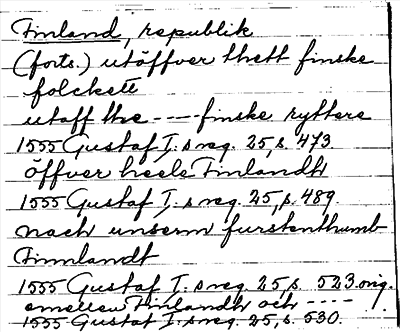 Finland, republik
(forts.) utöffver thett finske
folckett
utaff the ---- finske ryttere
1555 Gustaf I:s reg. 25, s. 473.
öffver heele Finlandh
1555 Gustaf I:s reg. 25, s. 489.
nach unserm furstenthumb
Finnlandt
1555 Gustaf I:s reg. 25, s. 523 orig.
emellen Finlandh och ----
1555 Gustaf I:s reg. 25, s. 530.